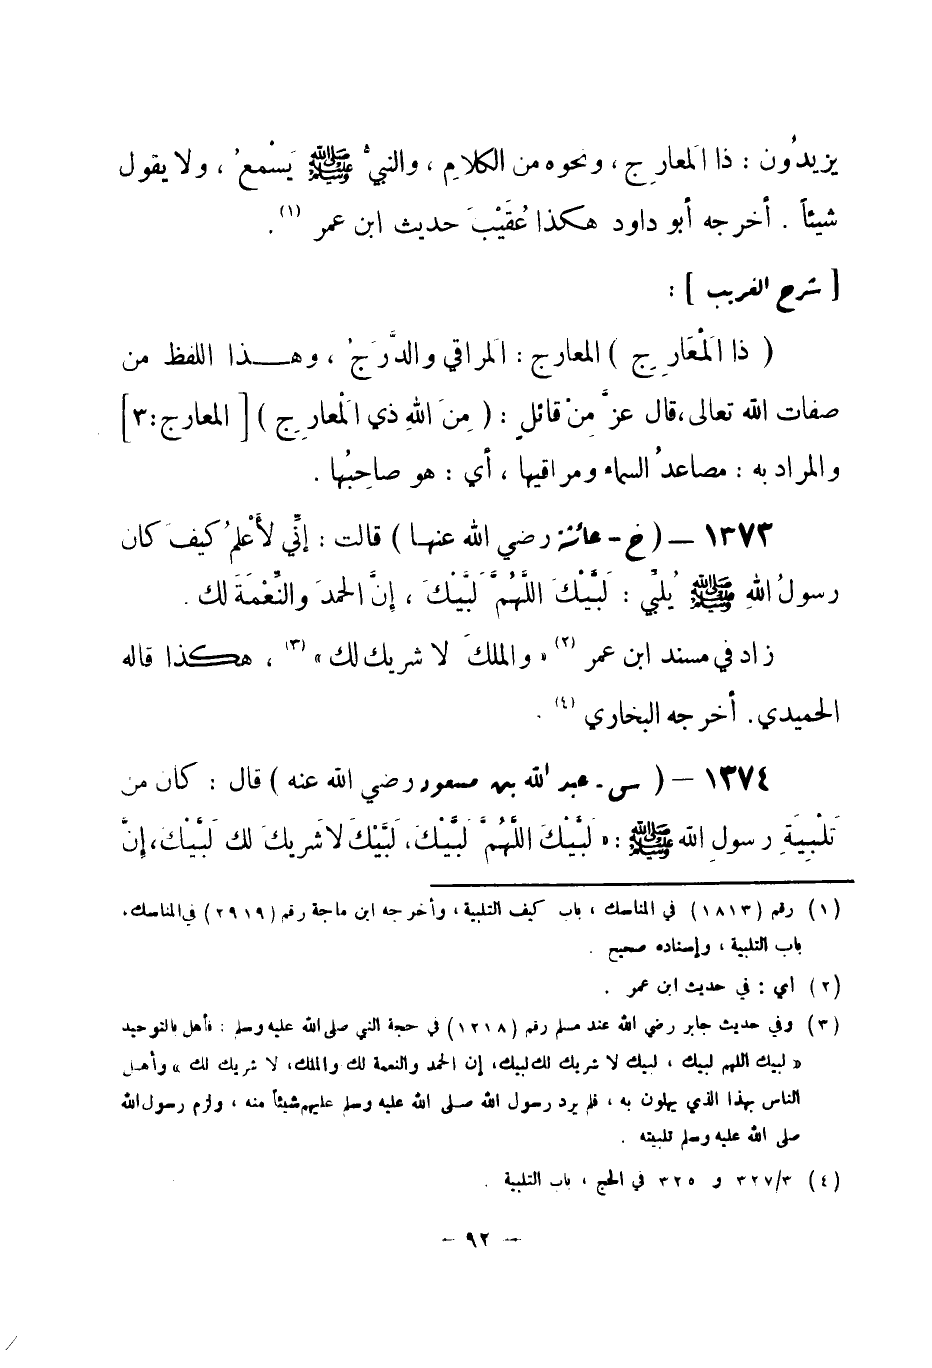 يزيدُون : ذا المعارِج ، ونحوه من الكلامِ ، والنبيُّ ﷺ يَسْمعُ ، ولا يقول
شيئاً . أخرجه أبو داود هكذا عُقَيْبَ حديث ابن عمر (١) .
[ شرح الغريب ] :
( ذا المْعَارِج ) المعارج : المراقي والدَّرَجُ ، وهذا اللفظ من
صفات الله تعالى، قال عزَّ مِنْ قائلٍ : ( مِنَ اللهِ ذي المْعارِجِ ) [ المعارج : ٣ ]
والمراد به : مصاعدُ السماء ومراقيها ، أي : هو صاحبُها .
١٣٧٣ – ( خ - عائشة رضي الله عنها ) قالت : إنِّي لأَعْلمُ كيفَ كان
رسولُ اللهِ ﷺ يُلبِّي : لَبَّيْكَ اللَّهُمَّ لَبَّيكَ ، إنَّ الحمدَ والنِّعْمَةَ لك .
زاد في مسند ابن عمر (٢) « والملكَ لا شريك لك » (٣) ، هكذا قاله
الحميدي . أخرجه البخاري (٤) .
١٣٧٤ – ( س - عبد الله بن مسعود رضي الله عنه ) قال : كان من
تَلْبِيَةِ رسولِ الله ﷺ : « لَبَّيْكَ اللَّهُمَّ لَبَّيْكَ، لَبَّيْكَ لا شَريكَ لك لَبَّيْكَ، إنَّ
(١) رقم (١٨١٣) في المناسك ، باب كيف التلبية ، وأخرجه ابن ماجة رقم (٢٩١٩) في المناسك،
باب التلبية ، وإسناده صحيح .
(٢) أي : في حديث ابن عمر .
(٣) وفي حديث جابر رضي الله عند مسلم رقم (١٢١٨) في حجة النبي صلى الله عليه وسلم : فأهل بالتوحيد
« لبيك اللهم لبيك ، لبيك لا شريك لك لبيك، إن الحمد والنعمة لك والملك، لا شريك لك » وأهل
الناس بهذا الذي يهلون به ، فلم يرد رسول الله صلى الله عليه وسلم عليهم شيئاً منه ، ولزم رسول الله
صلى الله عليه وسلم تلبيته .
(٤) ٣٢٧/٣ و ٣٢٥ في الحج ، باب التلبية .
– ٩٢ –